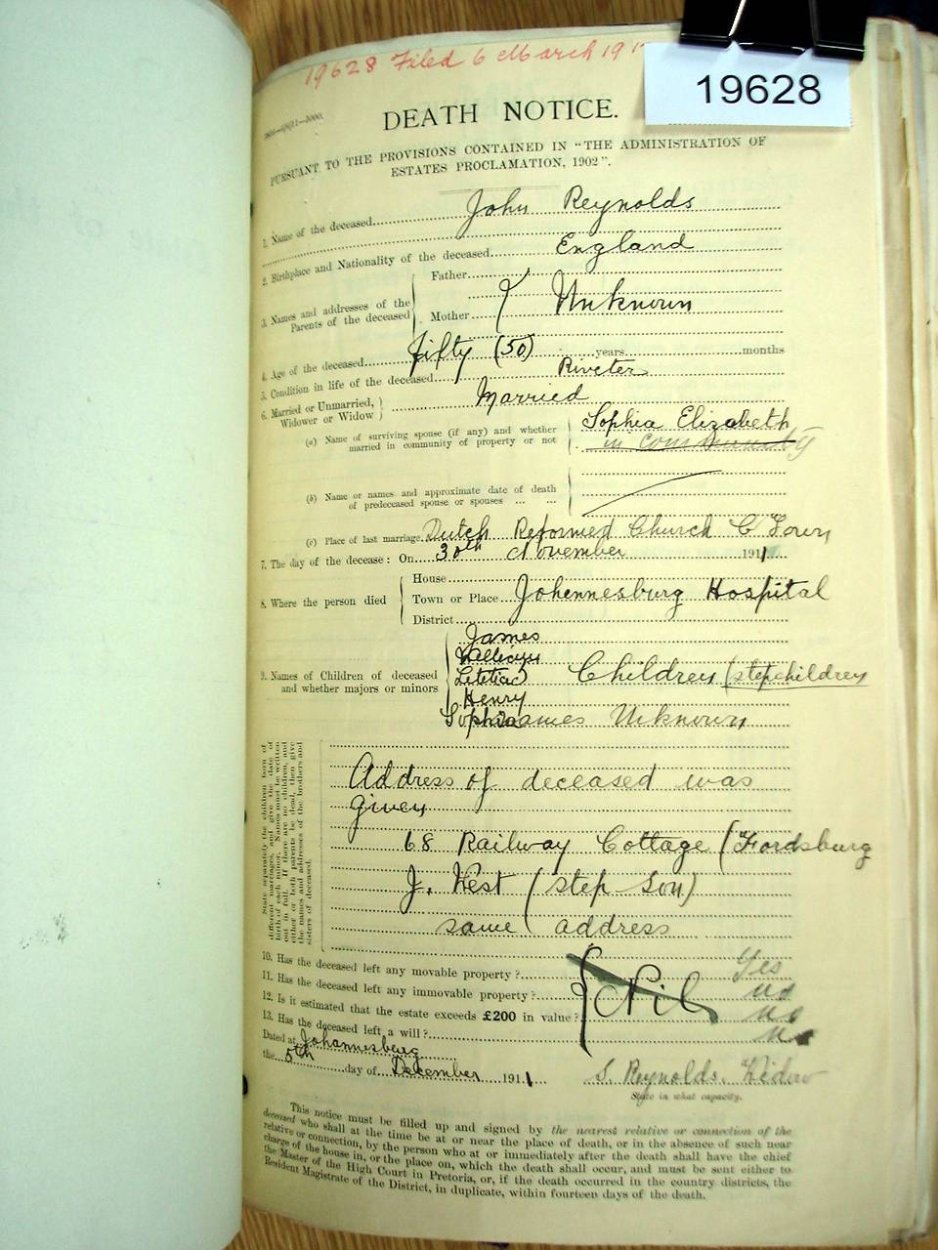 19628 Filed 6 March 191
19628
DEATH NOTICE.
PURSUANT TO THE PROVISIONS CONTAINED IN "THE ADMINISTRATION OF
ESTATES PROCLAMATION, 1902".
1. Name of the deceased John Reynolds
2. Birthplace and Nationality of the deceased England
3. Names and addresses of the Parents of the deceased
Father
Mother
Unknown
4. Age of the deceased fifty (50) years months
5. Condition in life of the deceased Riveter
6. Married or Unmarried, Widower or Widow Married
(a) Name of surviving spouse (if any) and whether
married in community of property or not
Sophia Elizabeth
in community
(b) Name or names and approximate date of death
of predeceased spouse or spouses ... ...
(c) Place of last marriage Dutch Reformed Church C Town
7. The day of the decease: On 30th November 1911
8. Where the person died
House
Town or Place Johennesburg Hospital
District
9. Names of Children of deceased
and whether majors or minors
James
Letitia
Henry
Sophia
Children (stepchildren
names Unknown
State separately the children born of
different marriages, and give the date of
birth of each minor. Names must be written
out in full. If there are no children, and
either or both parents be dead, then give
the names and addresses of the brothers and
sisters of deceased.
Address of deceased was
given
68 Railway Cottage (Fordsburg
J. West (step son)
same address
10. Has the deceased left any movable property? Yes
11. Has the deceased left any immovable property? no
12. Is it estimated that the estate exceeds £200 in value? no
13. Has the deceased left a will? no
Nil
Dated at Johannesburg
the 5th day of December 1911
S. Reynolds. Widow
State in what capacity.
This notice must be filled up and signed by the nearest relative or connection of the
deceased who shall at the time be at or near the place of death, or in the absence of such near
relative or connection, by the person who at or immediately after the death shall have the chief
charge of the house in, or the place on, which the death shall occur, and must be sent either to
the Master of the High Court in Pretoria, or, if the death occurred in the country districts, the
Resident Magistrate of the District, in duplicate, within fourteen days of the death.